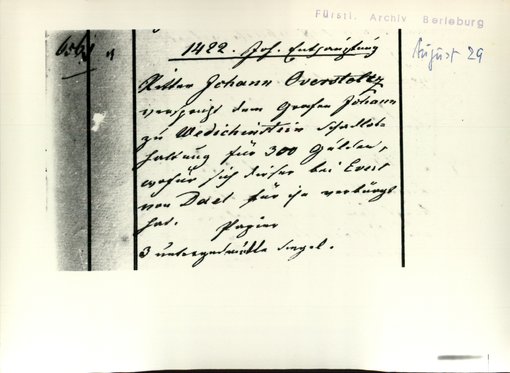 Fürstl. Archiv Berleburg
August 29
1422. Joh. Enthauptung
Ritter Johann Overstoltz
verspricht dem Grafen Johann
zu Wedichenstein Schadlos
haltung für 300 Gulden,
wofür sich dieser bei Evert
von Dael für ihn verbürgt
hat. Papier
3 untergedrückte Siegel.